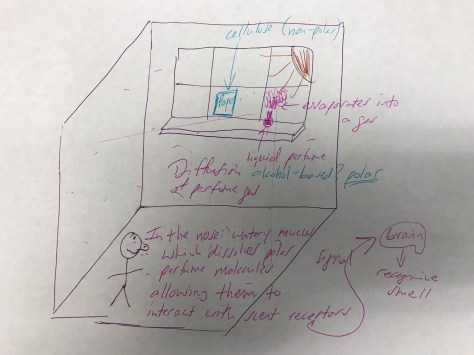 cellulose (non-polar)
tape
evaporates into
a gas
liquid perfume
Diffusion alcohol-based? polar
of perfume gas
In the nose: watery mucus
which dissolves polar
perfume molecules
allowing them to
interact with scent receptors
signal
brain
recognise
smell